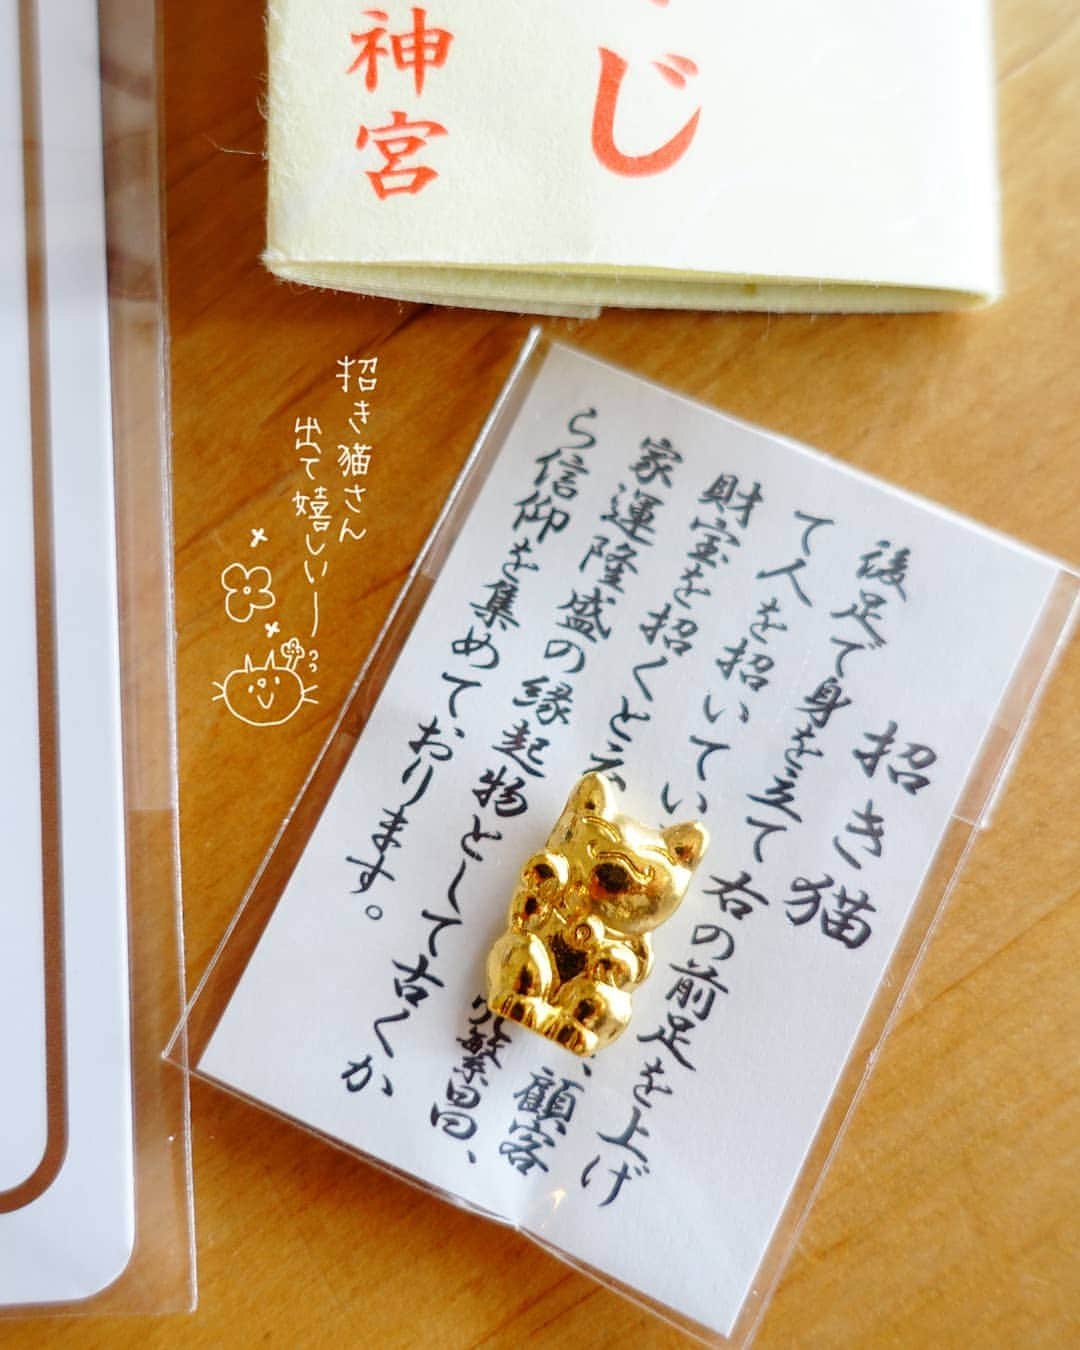 じ
神宮
招き猫
後足で身を立て右の前足を上げ
て人を招いてい
財宝を招くとえ 顧客
家運隆盛の縁起物として古くか
ら信仰を集めております。
繁昌、
招き猫さん
出て嬉しいー